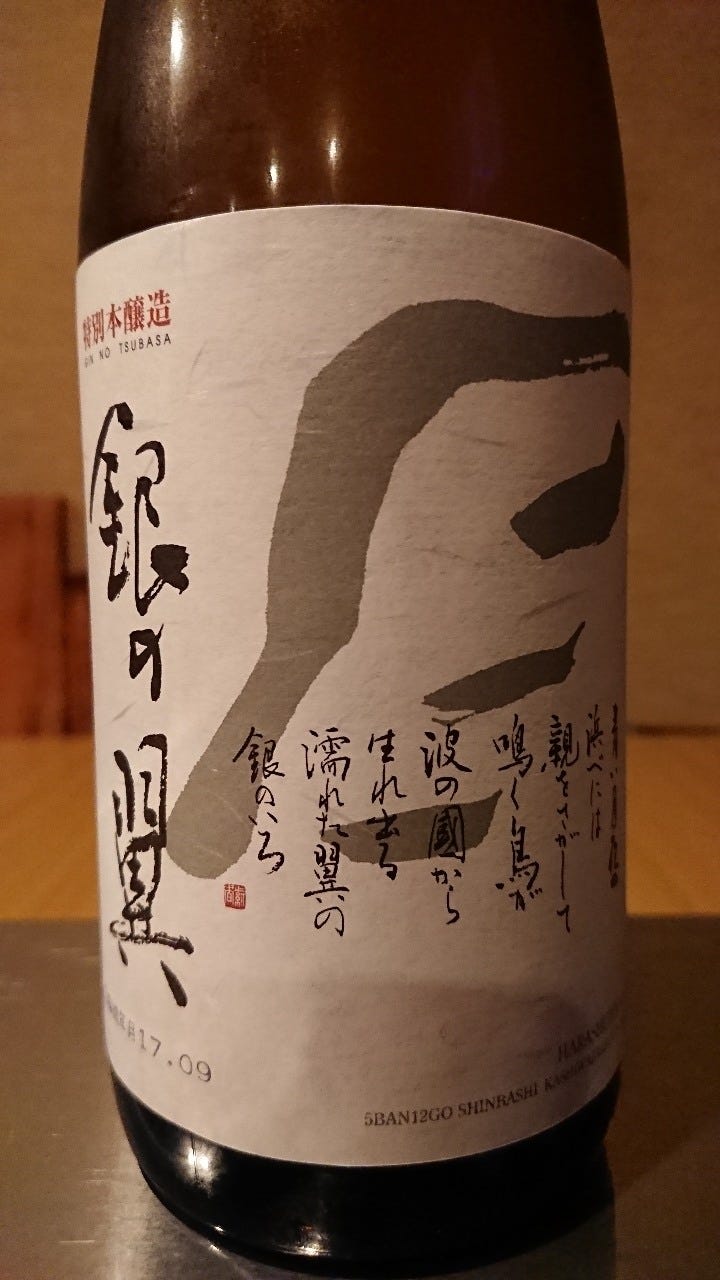 特別本醸造
GIN NO TSUBASA
銀の翼
浜べには
親をさがして
鳴く鳥が
波の國から
生れ出る
濡れた翼の
銀のいろ
17.09
5BAN12GO SHINBASHI